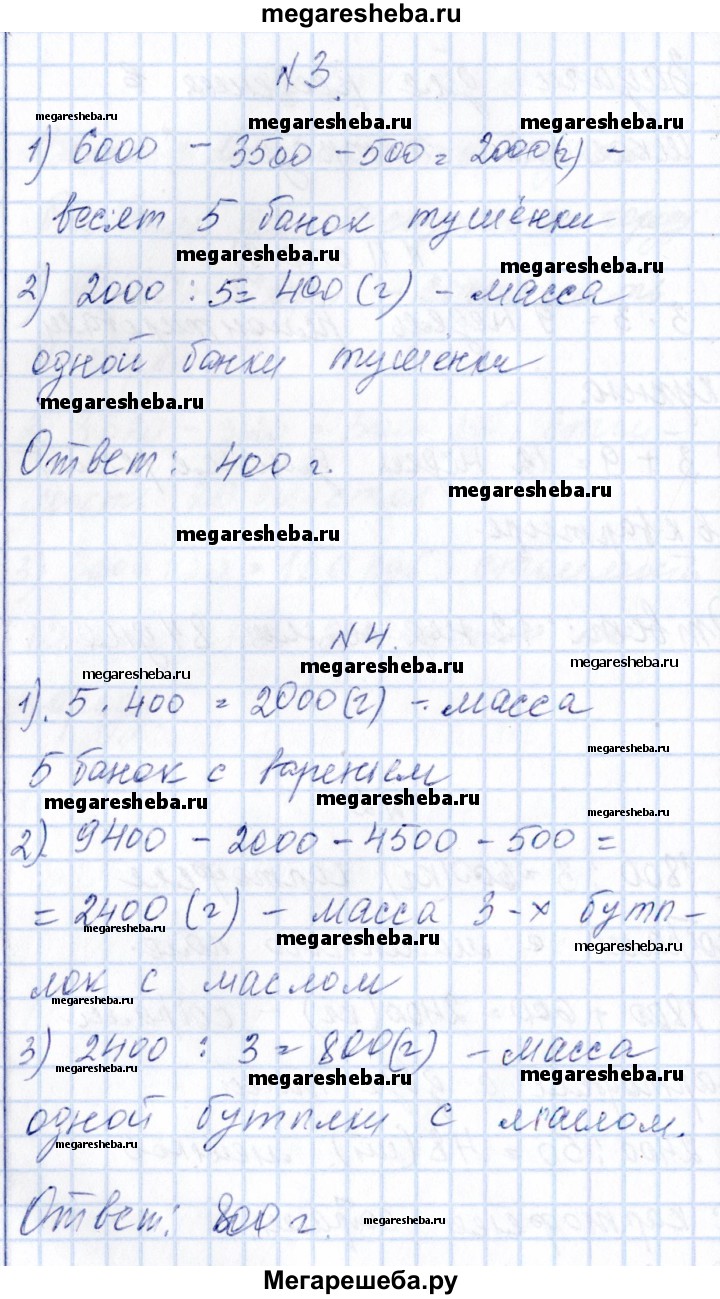 megaresheba.ru
N 3.
megaresheba.ru megaresheba.ru megaresheba.ru
1) 6000 - 3500 - 500 = 2000(г) -
весят 5 банок тушёнки
megaresheba.ru megaresheba.ru
2) 2000 : 5 = 400 (г) - масса
одной банки тушёнки
megaresheba.ru
Ответ: 400 г.
megaresheba.ru
megaresheba.ru
N 4.
megaresheba.ru megaresheba.ru megaresheba.ru
1). 5 · 400 = 2000(г) - масса
megaresheba.ru
5 банок с вареньем
megaresheba.ru megaresheba.ru megaresheba.ru
2) 9400 - 2000 - 4500 - 500 =
= 2400 (г) - масса 3-х буты-
megaresheba.ru megaresheba.ru megaresheba.ru
лок с маслом
megaresheba.ru
3) 2400 : 3 = 800(г) - масса
megaresheba.ru megaresheba.ru megaresheba.ru
одной бутылки с маслом.
megaresheba.ru
Ответ: 800 г.
megaresheba.ru
Мегарешеба.ру